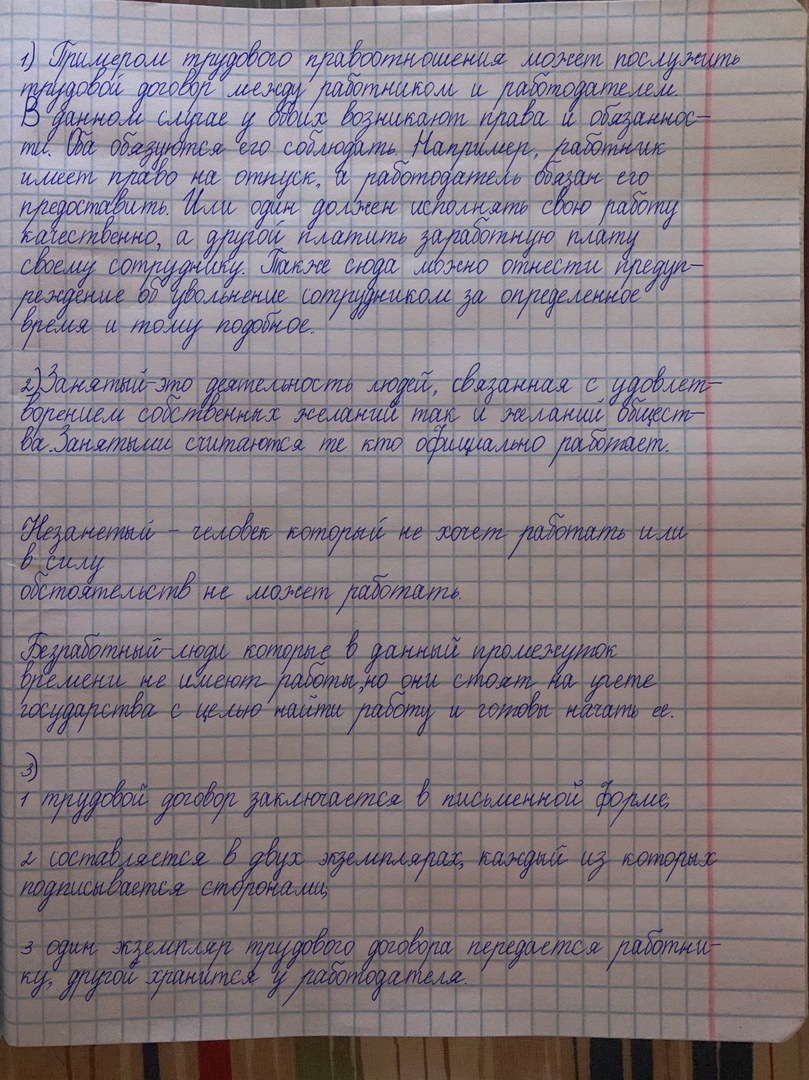 1) Примером трудового правоотношения может послужить
трудовой договор между работником и работодателем.
В данном случае у обоих возникают права и обязаннос-
ти. Оба обязуются его соблюдать. Например, работник
имеет право на отпуск, а работодатель обязан его
предоставить. Или один должен исполнять свою работу
качественно, а другой платить заработную плату
своему сотруднику. Также сюда можно отнести предуп-
реждение об увольнение сотрудником за определенное
время и тому подобное.
2) Занятый-это деятельность людей, связанная с удовлет-
ворением собственных желаний так и желаний общест-
ва. Занятыми считаются те кто официально работает.
Незанетый - человек который не хочет работать или
в силу
обстоятельств не может работать.
Безработный-люди которые в данный промежуток
времени не имеют работы,но они стоят на учете
государства с целью найти работу и готовы начать ее.
3)
1 трудовой договор заключается в письменной форме;
2 составляется в двух экземплярах, каждый из которых
подписывается сторонами;
3 один экземпляр трудового договора передается работни-
ку, другой хранится у работодателя.